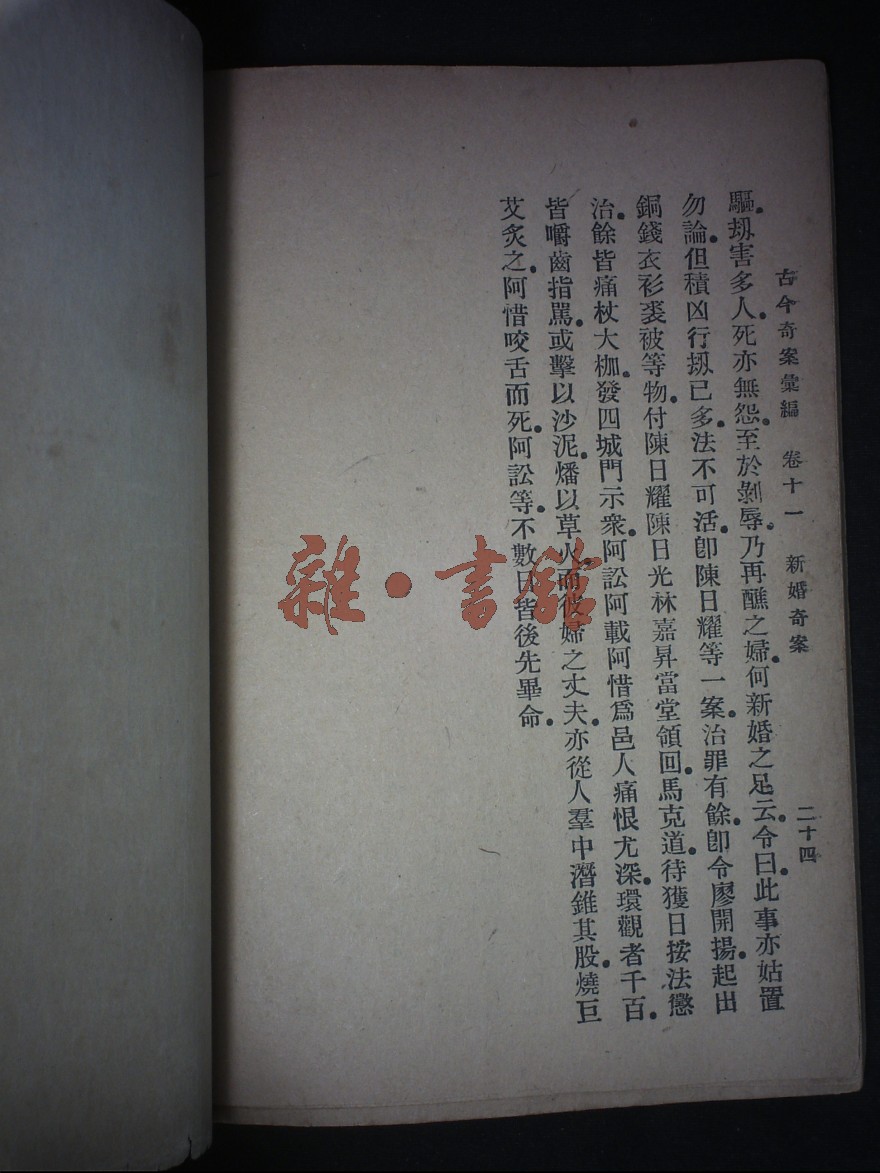 古今奇案彙編　卷十一　新婚奇案　二十四
驅刼害多人。死亦無怨。至於剝辱。乃再醮之婦。何新婚之足云。令曰。此事亦姑置
勿論。但積凶行刼已多。法不可活。卽陳日耀等一案。治罪有餘。卽令廖開揚。起出
銅錢衣衫裘被等物。付陳日耀陳日光林嘉昇當堂領回。馬克道。待獲日按法懲
治。餘皆痛杖大枷。發四城門示衆。阿訟阿載阿惜爲邑人痛恨尤深。環觀者千百。
皆嚼齒指罵。或擊以沙泥。燔以草火。而彼婦之丈夫。亦從人羣中潛錐其股。燒巨
艾炙之。阿惜咬舌而死。阿訟等。不數日皆後先畢命。
雜·書館